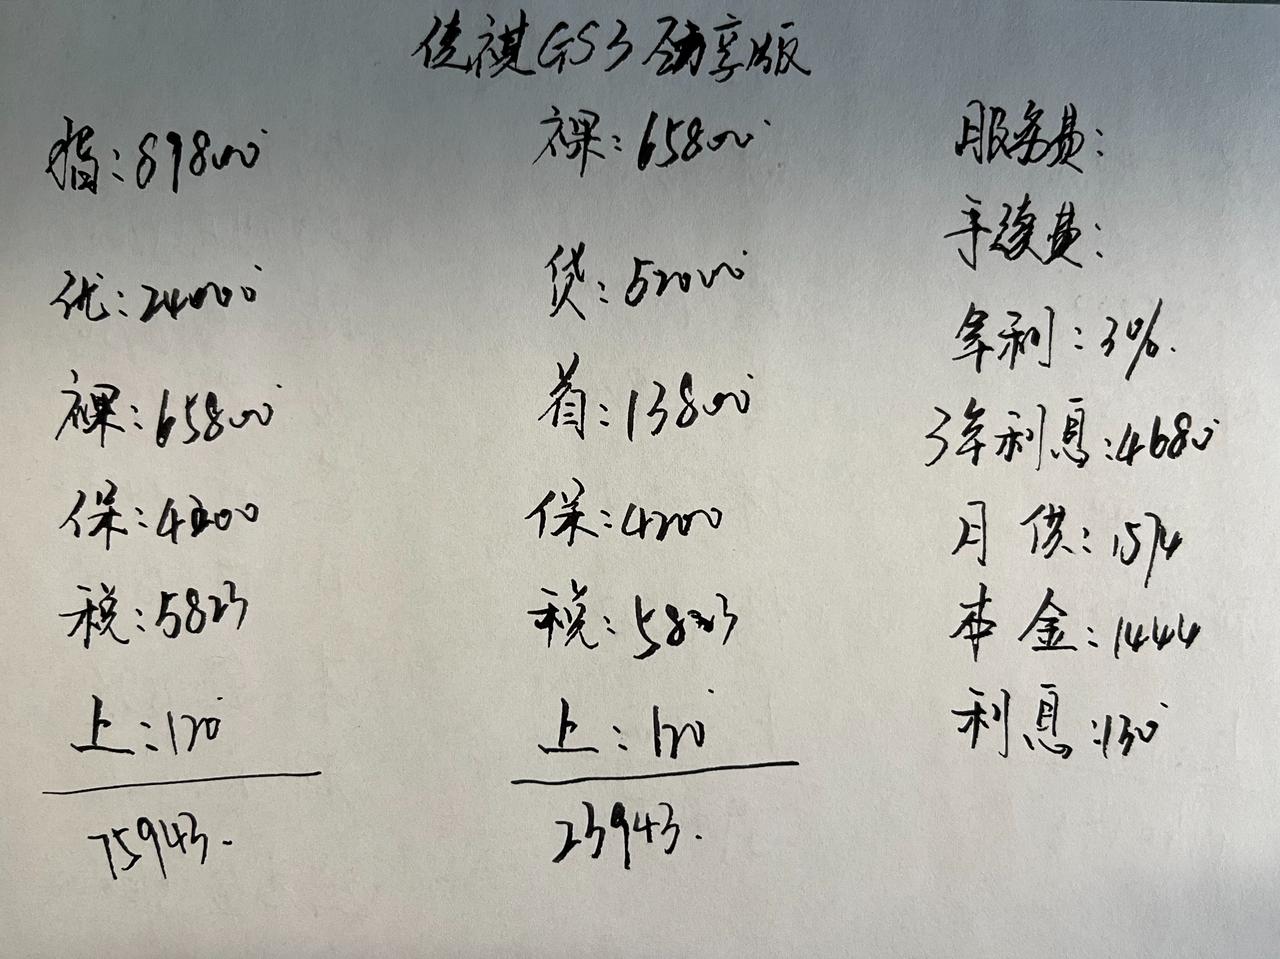 传祺GS3劲享版
指:89800
优:24000
裸:65800
保:4200
税:5823
上:120
75943.
裸:65800
贷:52000
首:13800
保:4200
税:5823
上:120
23943.
服务费:
手续费:
年利:3%.
3年利息:4680
月供:1574
本金:1444
利息:130